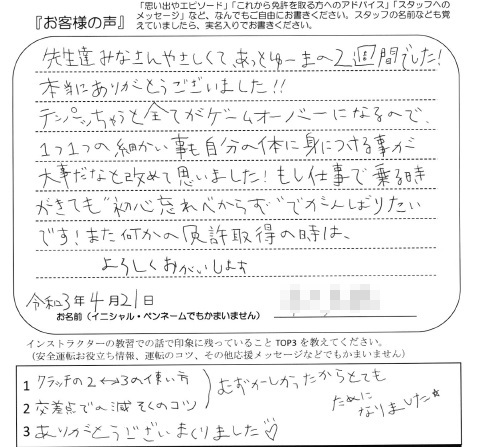 『お客様の声』
「思い出やエピソード」「これから免許を取る方へのアドバイス」「スタッフへの
メッセージ」など、なんでもご自由にお書きください。スタッフの名前なども覚
えていましたら、実名入りでお書きください。
先生達みなさんやさしくて、あっとゆーまの2週間でした!
本当にありがとうございました!!
テンパッちゃうと全てがゲームオーバーになるので、
1つ1つの細かい事も自分の体に身につける事が
大事だなと改めて思いました!もし仕事で乗る時
がきても"初心忘れべからず"でがんばりたい
です!また何かの免許取得の時は、
よろしくおねがいします
令和3年4月21日
お名前(イニシャル・ペンネームでもかまいません)
インストラクターの教習での話で印象に残っていること TOP3 を教えてください。
(安全運転お役立ち情報、運転のコツ、その他応援メッセージなどでもかまいません)
1 クラッチの2↔3の使い方
2 交差点での減そくのコツ
むずかしかったからとても
ために
なりました☆
3 ありがとうございまくりました♡